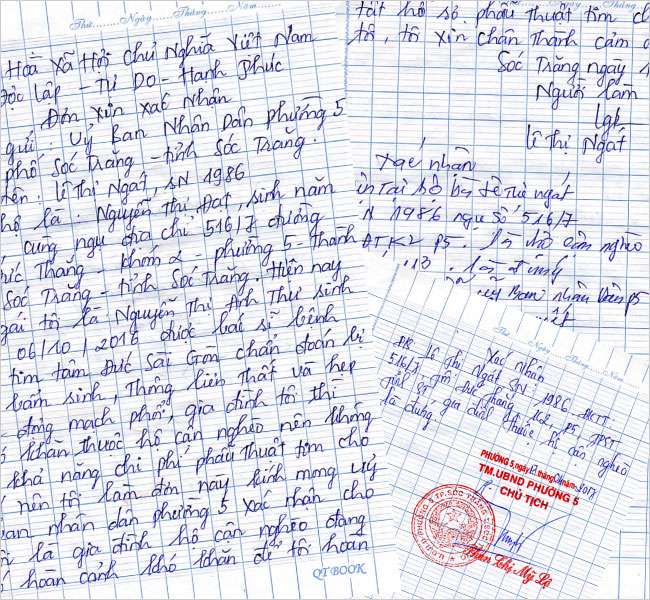 Thứ.........Ngày.........Tháng.........Năm.........
Hoà Xã Hội Chủ Nghĩa Việt Nam
Độc lập - Tự Do - Hạnh Phúc
Đơn xin xác Nhân
gửi: Uỷ Ban Nhân Dân phường 5
phố Sóc Trăng - tỉnh Sóc Trăng.
tên: lê Thị Ngát, SN 1986
hộ là: Nguyễn Thị Đạt, sinh năm
cung ngụ địa chỉ 516/7 đường
Thắng - khóm 2 - phường 5 - Thành
Sóc Trăng - tỉnh Sóc Trăng. Hiện nay
gái tôi là Nguyễn Thị Anh Thư sinh
06/10/2016 được bác sĩ bệnh
tim tâm Đức Sài Gòn chẩn đoán bị
bẩm sinh, Thông liên thất và hẹp
động mạch phổi, gia đình tôi thì
khăn thuộc hộ cận nghèo nên không
khả năng chi phí phẫu thuật tim cho
nên tôi làm đơn này kính mong uỷ
ban nhân dân phường 5 xác nhân cho
là gia đình hộ cận nghèo đang
hoàn cảnh khó khăn để tôi hoàn
QTBOOK
tất hồ sơ phẫu thuật tim
tôi, tôi xin chân thành cảm ơ
Sóc Trăng ngày 1
Người làm
lgh
lê Thị Ngát
Xác nhận
1986 ngụ số 516/7
K2 P5. là hộ cận nghèo
.13
Ban nhân dân p5
Thứ.........Ngày.........Tháng.........Năm.........
Xác Nhân
Lê Thị Ngát SN 1986
516/7, Thắng, K2, P5, TPST
Tỉnh ST, gia đình thuộc hộ cận nghèo
là đúng.
PHƯỜNG 5, ngày tháng năm 2017
TM.UBND PHƯỜNG 5
CHỦ TỊCH
U.B.N.D PHƯỜNG 5 TP.SÓC TRĂNG T.SÓC
Thị Mỹ Lệ